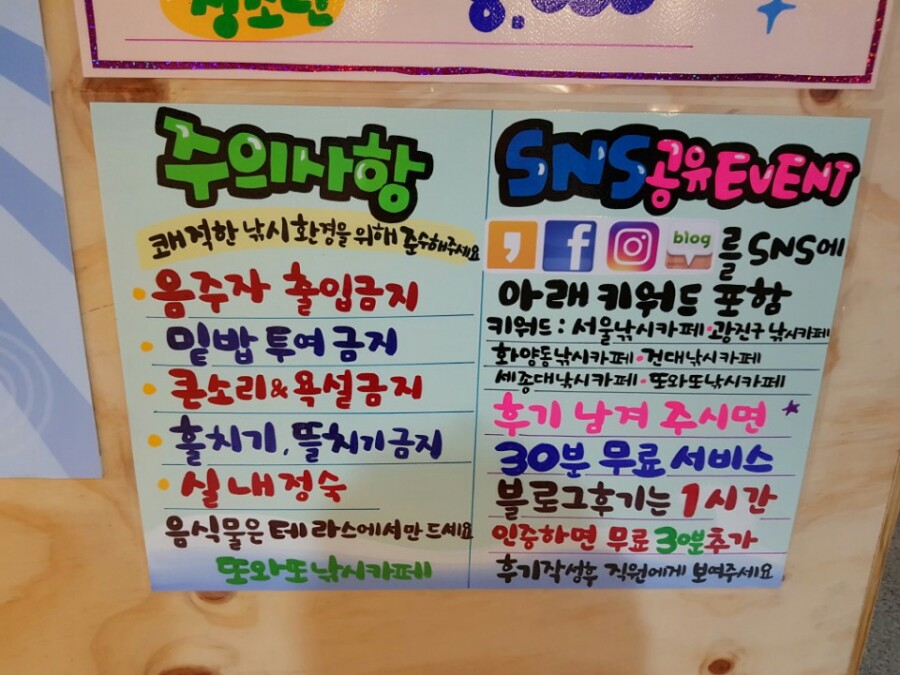 청소년
주의사항
쾌적한 낚시환경을 위해 준수해주세요
음주자 출입금지
밑밥 투여금지
큰소리&욕설금지
훌치기, 뜰치기금지
실내정숙
음식물은 테라스에서만 드세요
또와또낚시카페
SNS공유EVENT
blog 를 SNS에
아래 키워드 포함
키워드 : 서울낚시카페·광진구 낚시카페
화양동낚시카페·건대낚시카페
세종대낚시카페·또와또낚시카페
후기 남겨 주시면
30분 무료 서비스
블로그후기는 1시간
인증하면 무료 30분추가
후기작성후 직원에게 보여주세요